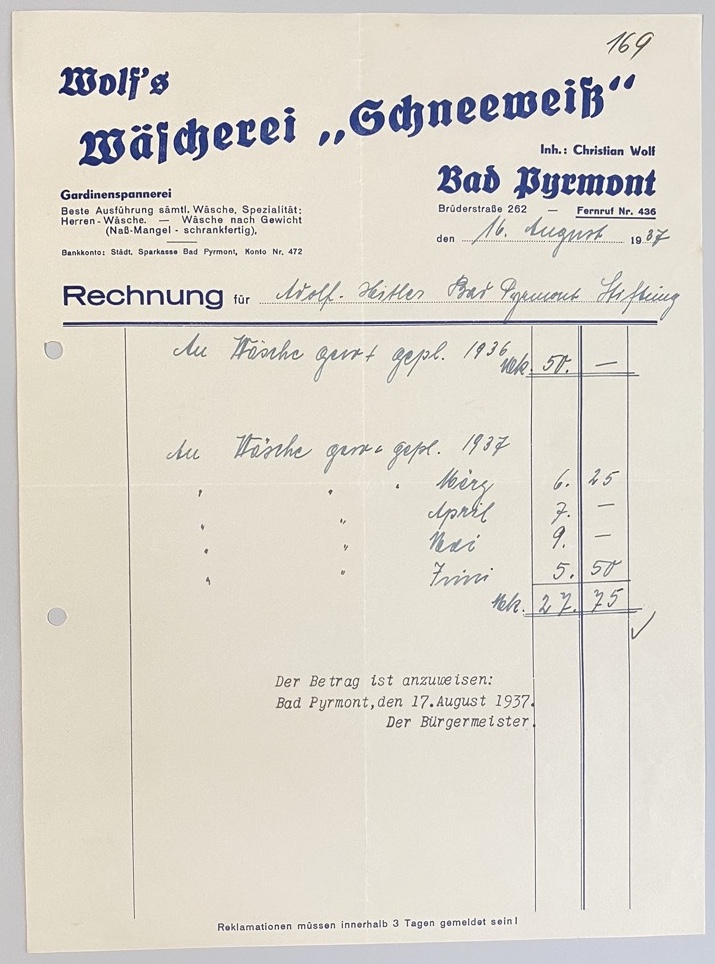 169
Wolf's
Wäscherei „Schneeweiß“
Inh.: Christian Wolf
Bad Pyrmont
Gardinenspannerei
Beste Ausführung sämtl. Wäsche, Spezialität:
Herren-Wäsche. — Wäsche nach Gewicht
(Naß-Mangel - schrankfertig),
Bankkonto: Städt. Sparkasse Bad Pyrmont, Konto Nr. 472
Brüderstraße 262 — Fernruf Nr. 436
den 16. August 1937
Rechnung für Adolf-Hitler Bad Pyrmont Stiftung
An Wäsche gew + gepl. 1936 Mk. 50. —
An Wäsche gew + gepl. 1937
" " " März 6. 25
" " April 7. —
" " Mai 9. —
" " Juni 5. 50
Mk. 27. 75
Der Betrag ist anzuweisen:
Bad Pyrmont,den 17.August 1937.
Der Bürgermeister.
Reklamationen müssen innerhalb 3 Tagen gemeldet sein!